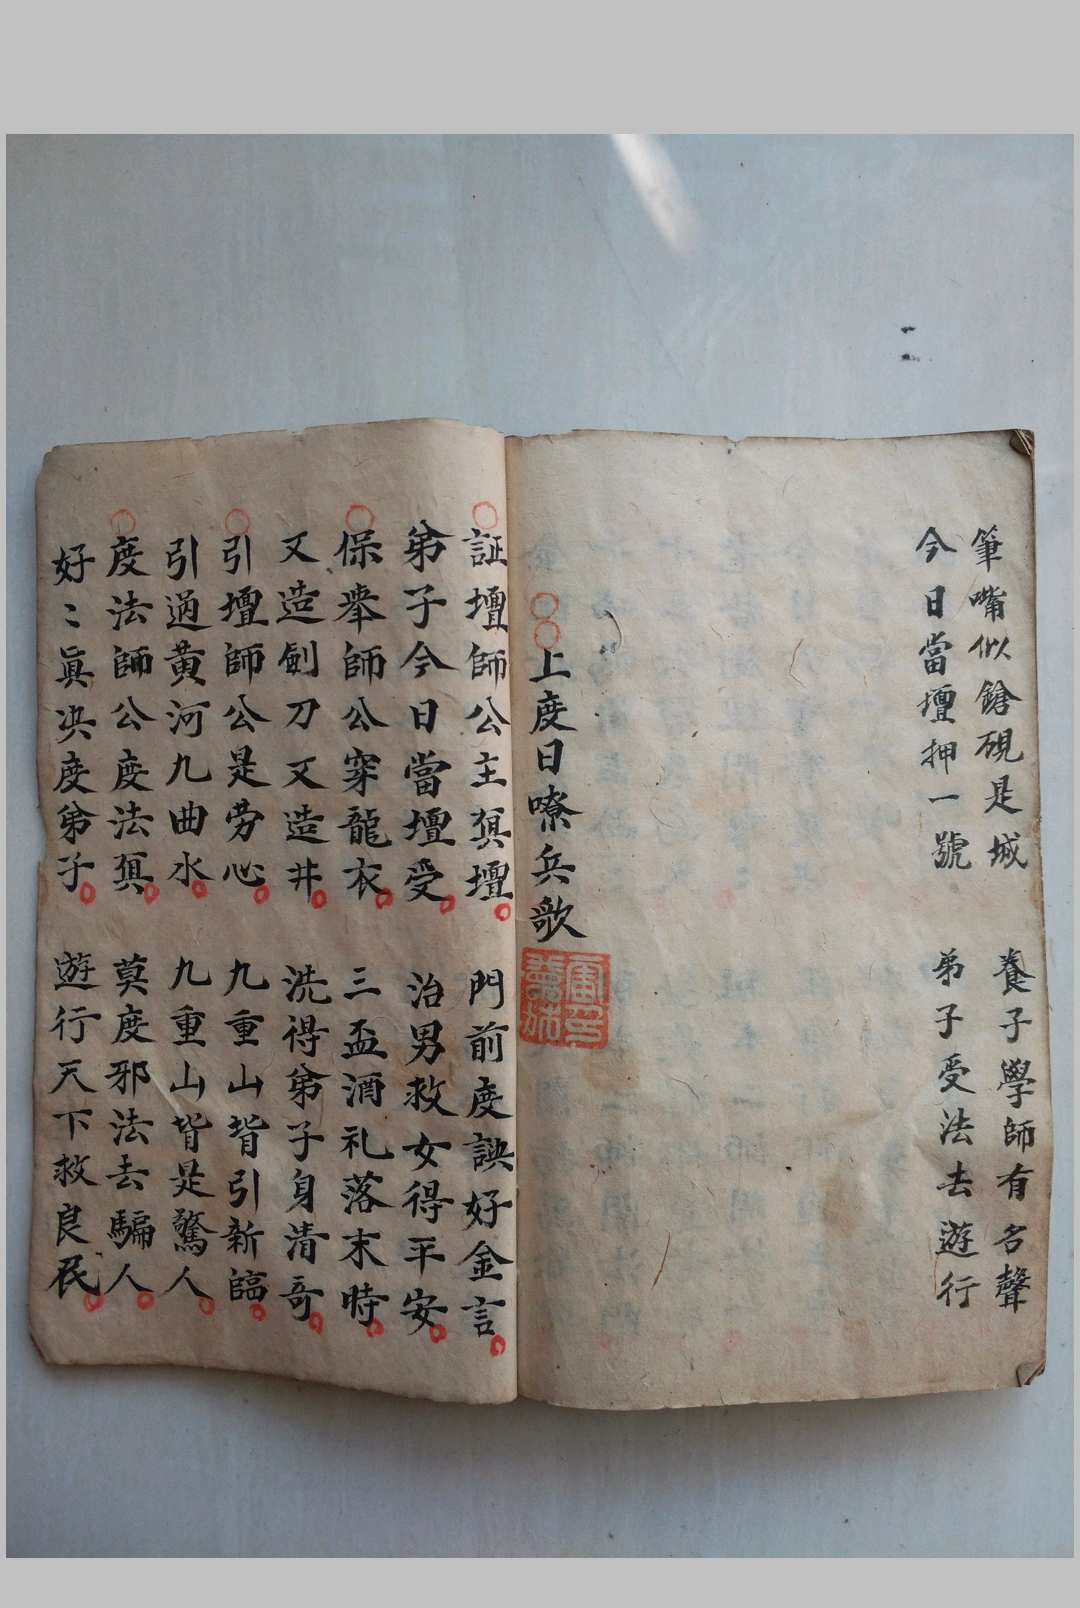 筆嘴似鎗硯是城　養子學師有名聲
今日當壇押一號　弟子受法去遊行
上度日嘹兵歌
証壇師公主䁂壇　門前度訣好金言
弟子今日當壇受　治男救女得平安
保舉師公穿龍衣　三盃酒礼落末時
又造劍刀又造井　洗得弟子身清哥
引壇師公是劳心　九重山背引新臨
引過黄河九曲水　九重山背是驚人
度法師公度法　莫度邪法去騙人
好〻真决度弟子　遊行天下救良民